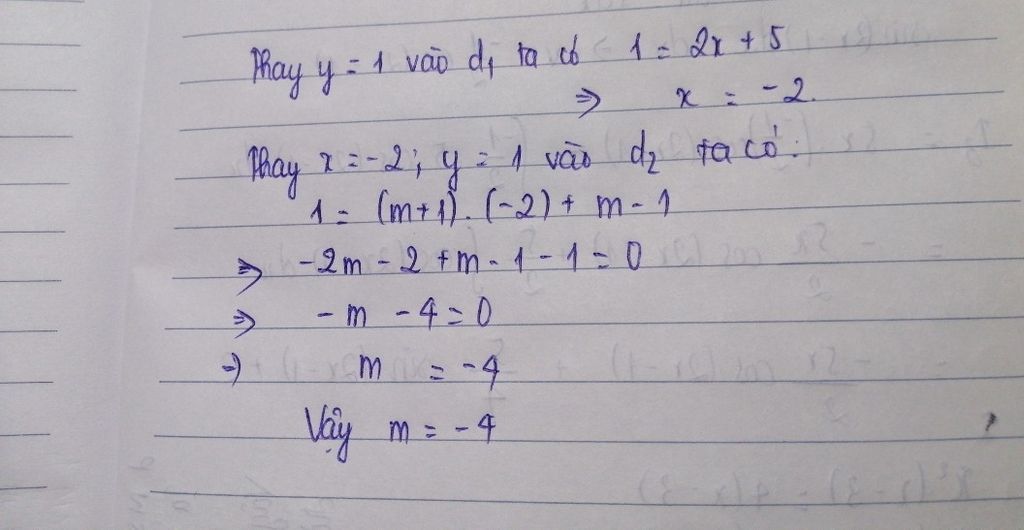 Thay y = 1 vào d₁ ta có 1 = 2x + 5
⇒ x = -2.
Thay x = -2; y = 1 vào d₂ ta có:
1 = (m+1).(-2) + m - 1
⇒ -2m - 2 + m - 1 - 1 = 0
⇒ -m - 4 = 0
⇒ m = -4
Vậy m = -4